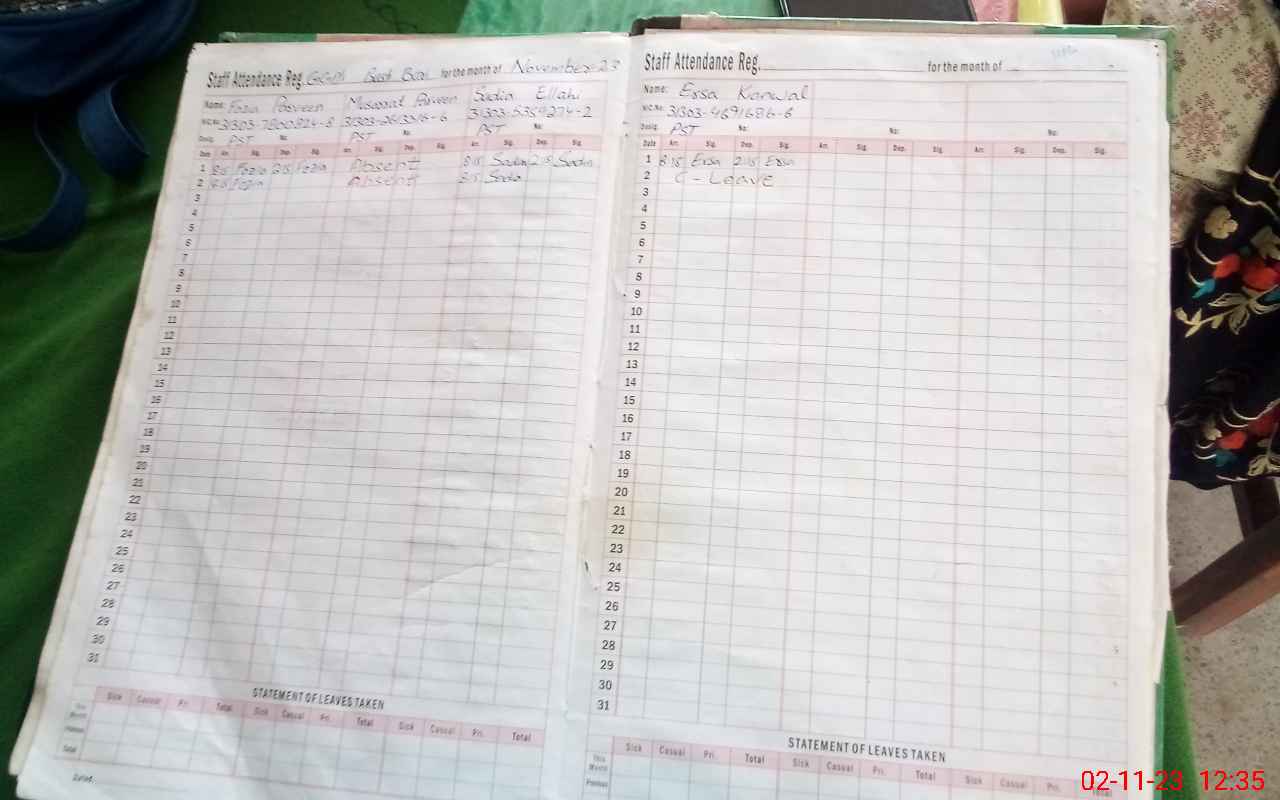 Staff Attendance Reg. for the month of November-23
Name: Fozia Parveen Musarrat Parveen Sadia Ellahi
N.I.C.No: 31303- 31303- 31303-5359274-2
Desig. PST No: PST No: PST No:
Date Arr. Sig. Dep. Sig. Arr. Sig. Dep. Sig. Arr. Sig. Dep. Sig.
1 8:15 Fozia 2:15 Fozia Absent 8:15 Sadia 2:15 Sadia
2 8:15 Fozia Absent 8:15 Sadia
3
4
5
6
7
8
9
10
11
12
13
14
15
16
17
18
19
20
21
22
23
24
25
26
27
28
29
30
31
STATEMENT OF LEAVES TAKEN
Sick Casual Pri. Total Sick Casual Pri. Total Sick Casual Pri. Total
This Month
Previous
Total
Staff Attendance Reg. for the month of
Name: Essa Kanwal
N.I.C.No: 31303-4691686-6
Desig. PST No: No: No:
Date Arr. Sig. Dep. Sig. Arr. Sig. Dep. Sig. Arr. Sig. Dep. Sig.
1 8:15 Essa 2:15 Essa
2 C-Leave
3
4
5
6
7
8
9
10
11
12
13
14
15
16
17
18
19
20
21
22
23
24
25
26
27
28
29
30
31
STATEMENT OF LEAVES TAKEN
Sick Casual Pri. Total Sick Casual Pri. Total Sick Casual Pri. Total
This Month
Previous
02-11-23 12:35